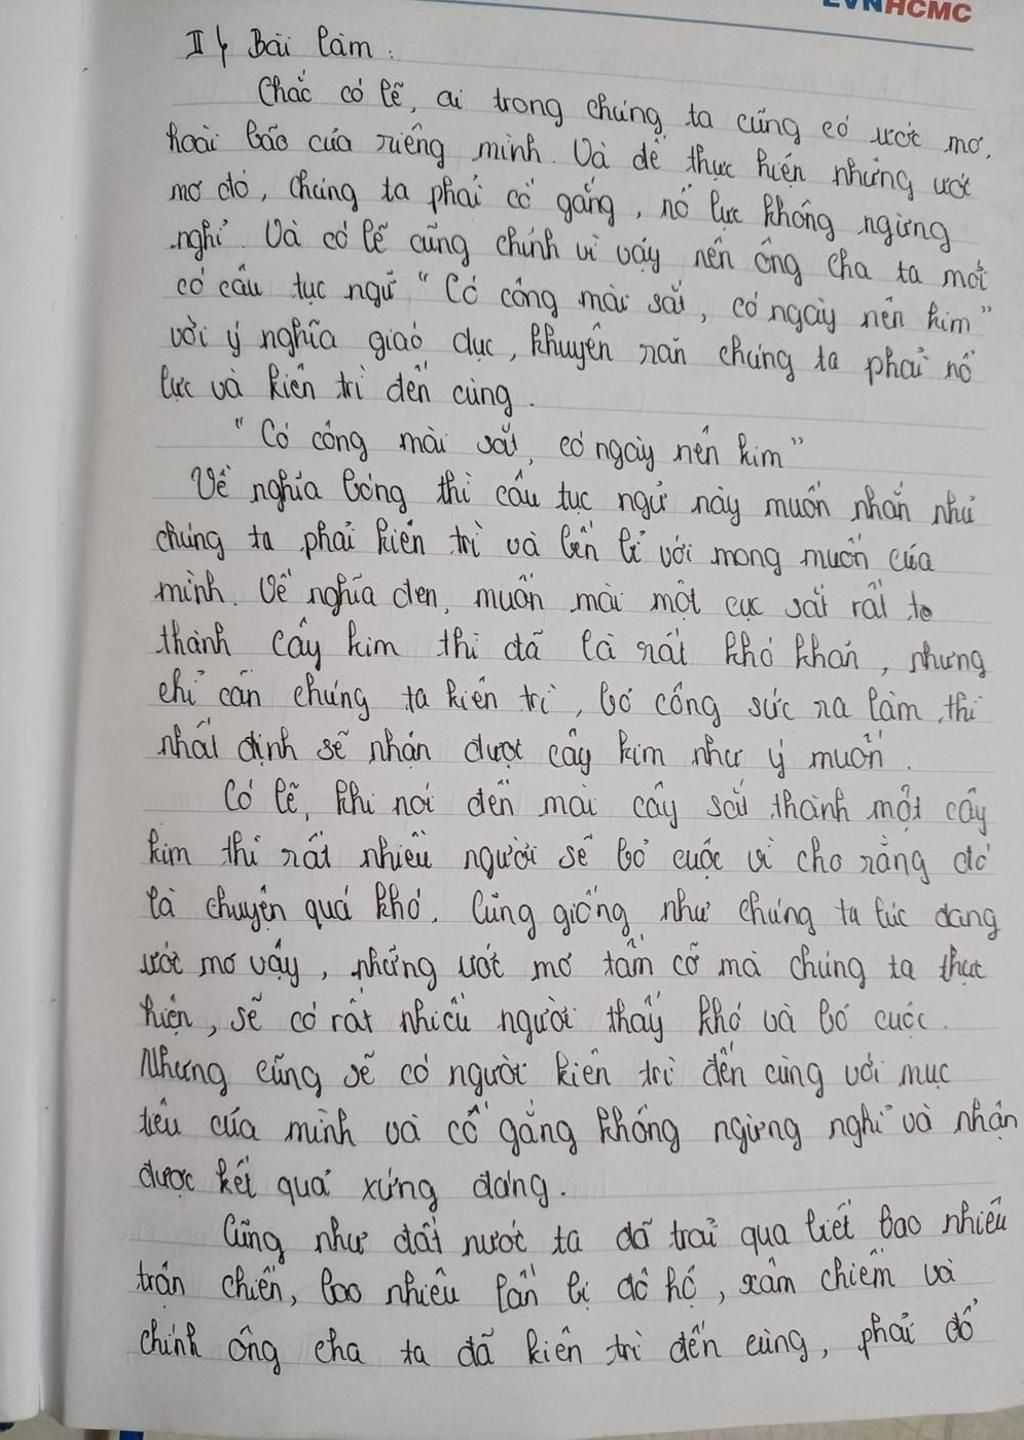 EVNHCMC
II, Bài làm :
Chắc có lẽ, ai trong chúng ta cũng có ước mơ,
hoài bão của riêng mình. Và để thực hiện những ước
mơ đó, chúng ta phải cố gắng, nổ lực không ngừng
nghỉ. Và có lẽ cũng chính vì vậy nên ông cha ta mới
có câu tục ngữ "Có công mài sắt, có ngày nên kim"
với ý nghĩa giáo dục, khuyên răn chúng ta phải nổ
lực và kiên trì đến cùng.
"Có công mài sắt, có ngày nên kim"
Về nghĩa bóng thì câu tục ngữ này muốn nhắn nhủ
chúng ta phải kiên trì và bền bỉ với mong muốn của
mình. Về nghĩa đen, muốn mài một cục sắt rất to
thành cây kim thì đã là rất khó khăn, nhưng
chỉ cần chúng ta kiên trì, bỏ công sức ra làm thì
nhất định sẽ nhận được cây kim như ý muốn.
Có lẽ, khi nói đến mài cây sắt thành một cây
kim thì rất nhiều người sẽ bỏ cuộc vì cho rằng đó
là chuyện quá khó. Cũng giống như chúng ta lúc đang
ước mơ vậy, những ước mơ tầm cỡ mà chúng ta thực
hiện, sẽ có rất nhiều người thấy khó và bỏ cuộc.
Nhưng cũng sẽ có người kiên trì đến cùng với mục
tiêu của mình và cố gắng không ngừng nghỉ và nhận
được kết quả xứng đáng.
Cũng như đất nước ta đã trải qua biết bao nhiêu
trận chiến, bao nhiêu lần bị đô hộ, xâm chiếm và
chính ông cha ta đã kiên trì đến cùng, phải đổ